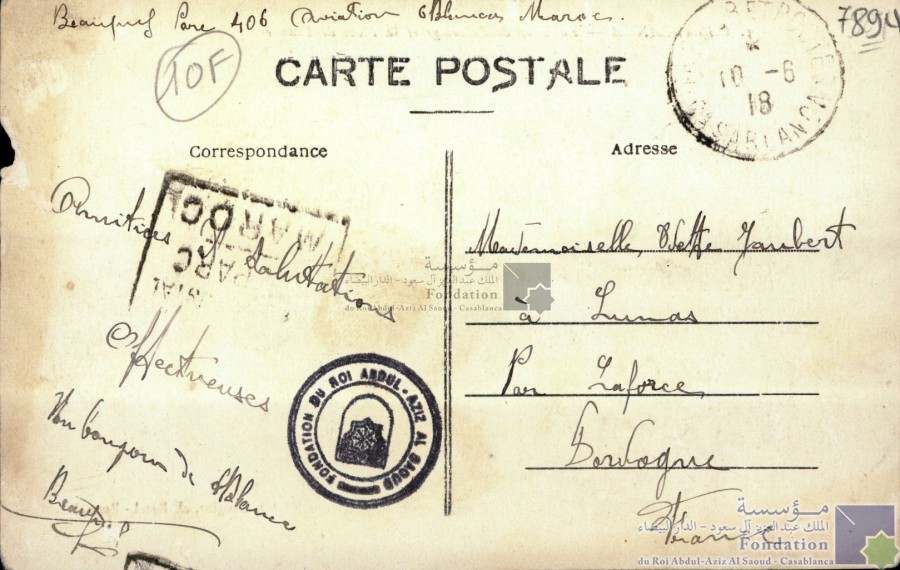 Parc 406 Aviation Maroc.
7894
10F
CARTE POSTALE
10 -6
18
CASABLANCA
Correspondance
Adresse
MAROC
Amitiés & Salutations
Affectueuses
Un bonjour de
Mademoiselle Jaubert
à Lunas
Par Laforce
Dordogne
France
مؤسسة
الملك عبد العزيز آل سعود - الدار البيضاء
Fondation
du Roi Abdul-Aziz Al Saoud - Casablanca
FONDATION DU ROI ABDUL-AZIZ AL SAOUD
مؤسسة
الملك عبد العزيز آل سعود - الدار البيضاء
Fondation
du Roi Abdul-Aziz Al Saoud - Casablanca